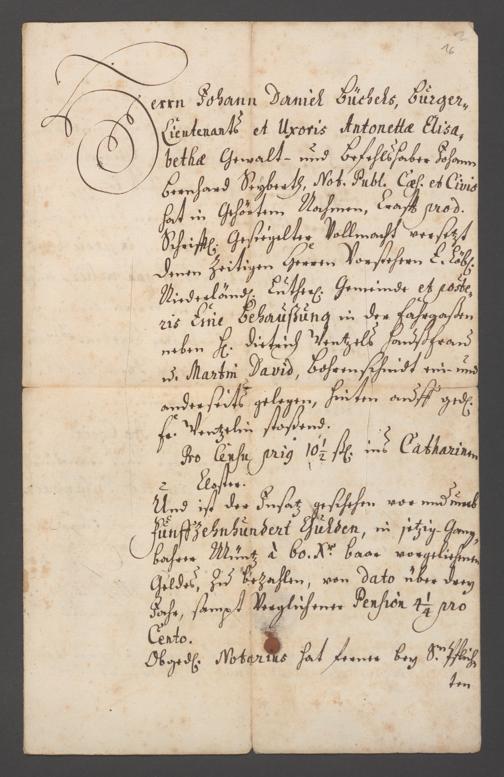 2
16
Herrn Johann Daniel Büchels, Bürger-
Lieutenants et Uxoris Antonettæ Elisa-
bethæ Gewalt- und befehlshaber Johann
bernhard Seyberth, Not. Publ. Cæs. et Civis
hat in Gehörtem Nahmen, Krafft prod.
Schrifftl. Gesiegelter Vollmacht versetzt
denen Zeitigen Herren Vorstehern E. Löbl.
Niederländ. Luther. Gemeinde et poste-
ris Eine behaußung in der Fahrgaßen
neben H. Dietrich Ventzels Haußfrau
u. Martin David, bohrenschmidt ein- und
anderseits gelegen, hinten auff ged.
fr. Ventzelin stoßend.
Pro Censu prig 10 1/2 ßl. ins Catharinen
Closter.
Und ist der Insatz geschehen vor und umb
Fünffzehnhundert Gulden, in jetzig-Gang-
bahrer Müntz à 60. Xr baar vorgeliehenen
Geldes, Zu bezahlen, von dato über drey
Jahr, sampt Verglichener Pension 4 1/4 pro
Cento.
Obged. Notarius hat ferner bey Sn Pflich-
ten